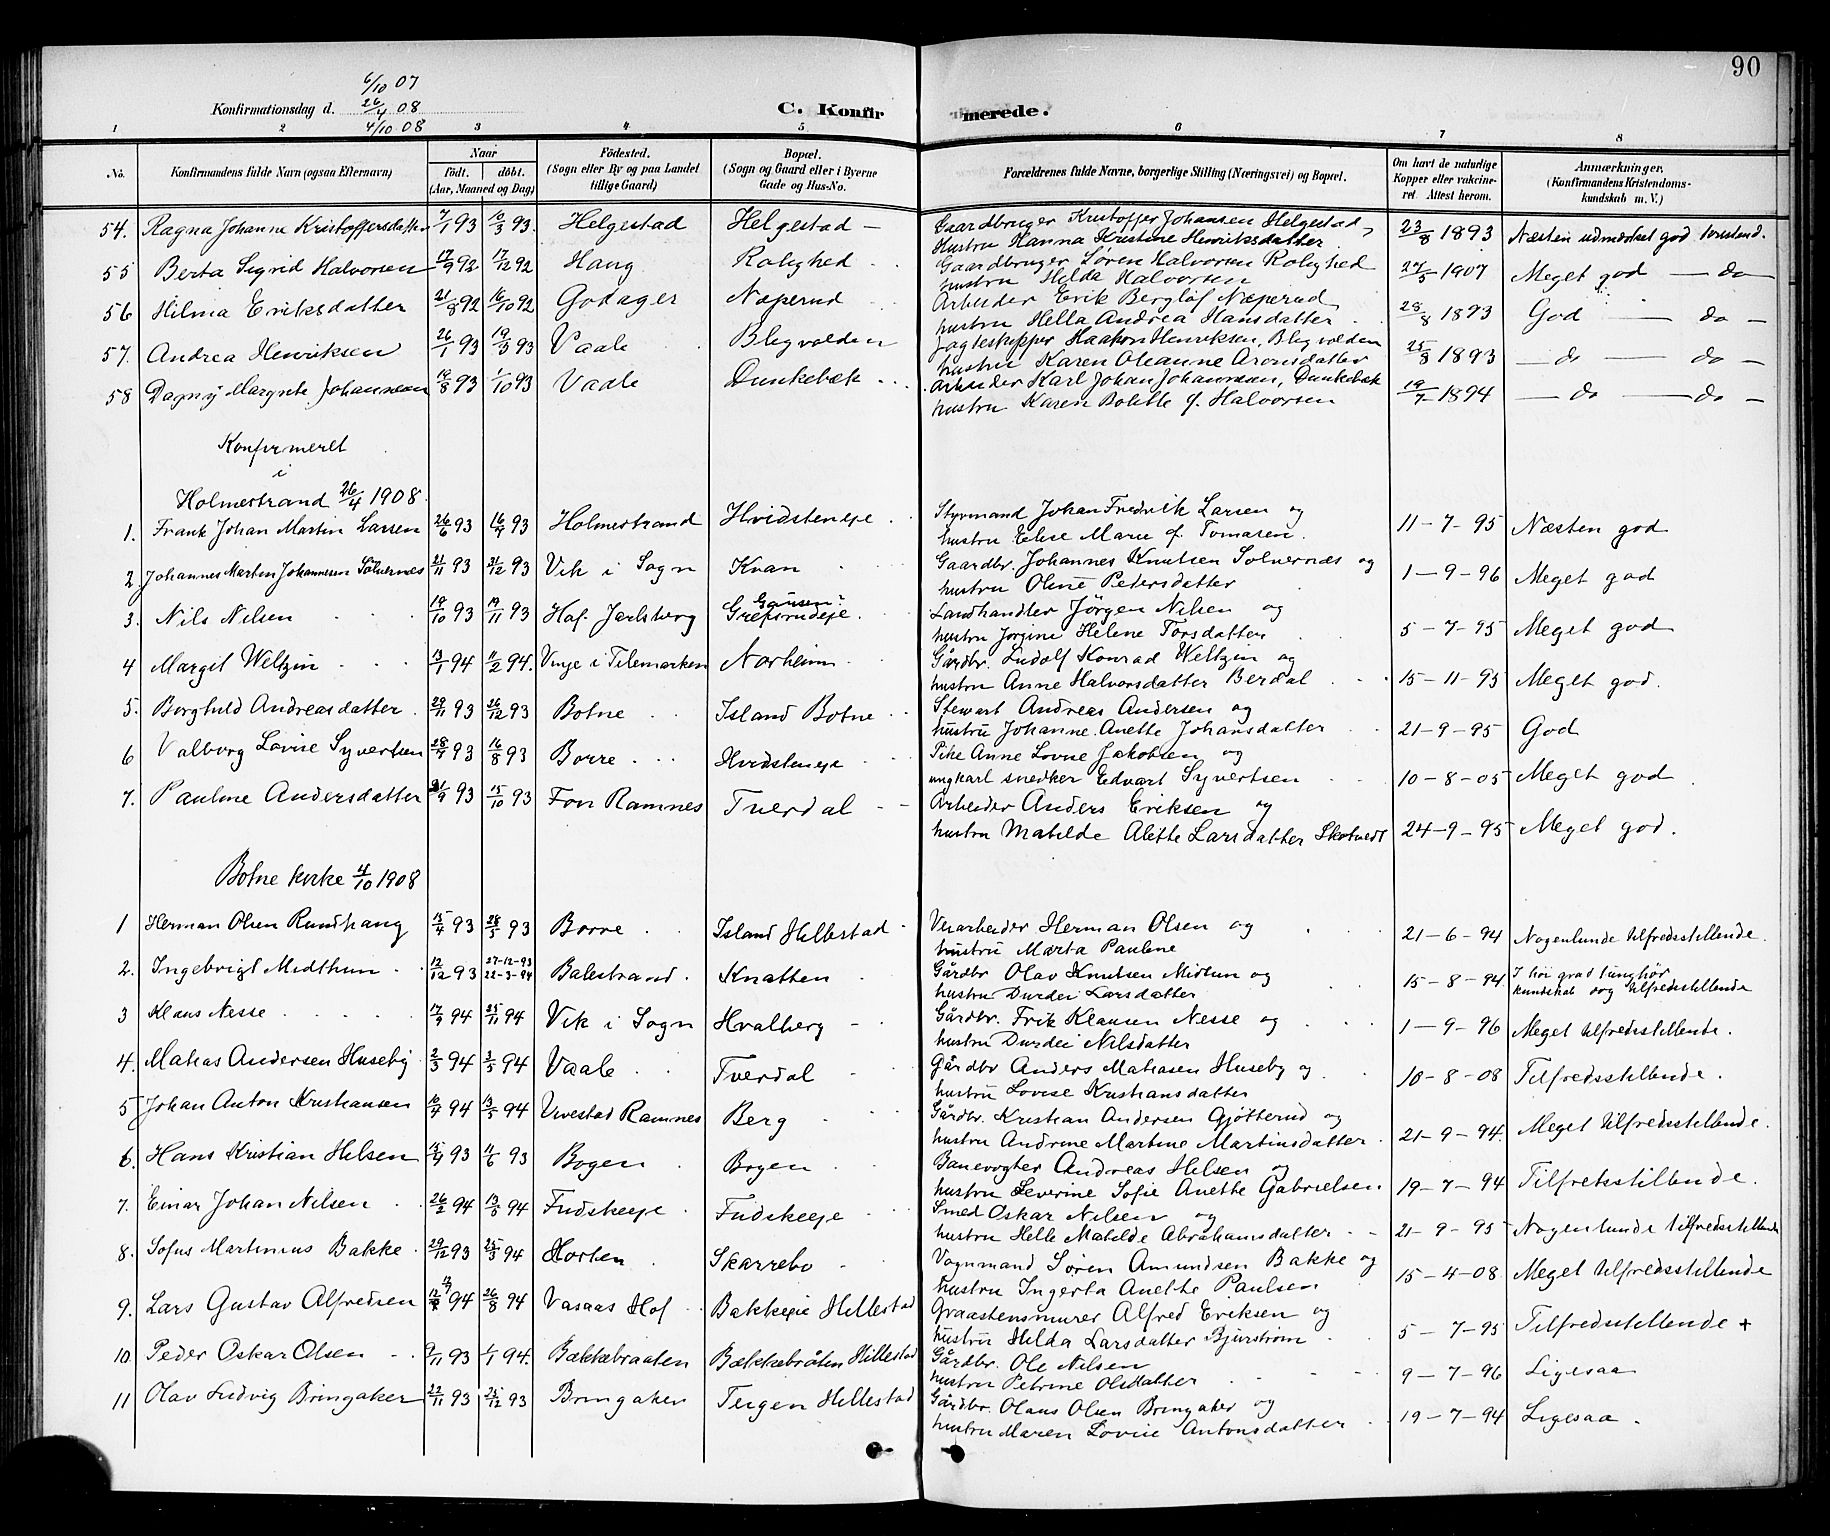 90
6/10 07
Konfirmationsdag d. 26/4 08
4/10 08
C. Konfirmerede.
1 2 3 4 5 6 7 8
No. Konfirmandens fulde Navn (ogsaa Efternavn) Naar født. døbt. (Aar, Maaned og Dag) Fødested. (Sogn eller By og paa Landet tillige Gaard) Bopæl. (Sogn og Gaard eller i Byerne Gade og Hus-No. Forældrenes fulde Navne, borgerlige Stilling (Næringsvei) og Bopæl. Om havt de naturlige Kopper eller vakcineret. Attest herom. Anmærkninger. (Konfirmandens Kristendomskundskab m. V.)
54. Ragna Johanne Kristoffersdatter 7/1 93 10/3 93. Helgestad Helgestad — Gaardbruger Kristoffer Johansen Helgestad,
Hustru Hanna Kristine Henriksdatter 23/8 1893 Næsten udmærket god
55 Berta Sigrid Halvorsen 17/9 92 17/12 92 Haug Rolighed Gaardbruger Søren Halvorsen Rolighed
hustru Helda Halvorsen 27/5 1907 Meget god — do —
56 Hilma Eriksdatter 21/8 92 16/10 92 Godager Næperud Arbeider Erik Bergløf Næperud
hustru Hella Andrea Hansdatter 28/8 1893 God — do —
57. Andrea Henriksen 26/1 93 19/3 93 Vaale Blegvolden Jagteskipper Haakon Henriksen, Blegvolden
hustru Karen Oleanne Aronsdatter 25/8 1893 — do — do —
58 Dagny Margrete Johannesen 19/8 93 1/10 93 Vaale Dunkebæk Arbeider Karl Johan Johannesen, Dunkebæk
hustru Karen Bolette f. Halvorsen 19/7 1894 — do — do —
Konfirmeret
i
Holmestrand 26/4 1908
1. Frank Johan Martin Larsen 26/6 93 16/7 93 Holmestrand Hvidsteneje Styrmand Johan Fredrik Larsen og
hustru Elise Marie f. Tomasen. 11-7-95 Næsten god
2. Johannes Martin Johannesen Solvernæs 21/11 93 31/12 93 Vik i Sogn Kvan Gaardbr. Johannes Knutsen Solvernæs og
hustru Oline Petersdatter 1-9-96 Meget god
3. Nils Nilsen 19/10 93 19/11 93 Hof. Jarlsberg Gausen
Grefsrudeje. Landhandler Jørgen Nilsen og
hustru Jorgine Helene Torsdatter 5-7-95 Meget god
4 Margit Weltzin 13/1 94 11/2 94. Vinje i Telemarken Norheim Gårdbr. Ludolf Konrad Weltzin og
hustru Anne Halvorsdatter Berdal 15-11-95 Meget god.
5. Borghild Andreasdatter 29/11 93 26/12 93 Botne Island Botne Stewart Andreas Andersen og
hustru Johanne Anette Johansdatter 21-9-95 God
6 Valborg Lovise Syvertsen 28/7 93 16/8 93 Borre Hvidsteneje Pike Anne Lovise Jakobsen og
ungkarl snedker Edvart Syvertsen 10-8-05 Meget god
7. Pauline Andersdatter 93 15/10 93 Fon Ramnes Tverdal Arbeider Anders Eriksen og
hustru Matilde Alette Larsdatter Skotvedt 24-9-95 Meget god.
Botne kirke 4/10 1908
1 Herman Olsen Rundhaug 15/4 93 28/5 93 Borre Island Hillestad Veiarbeider Herman Olsen og
hustru Marta Pauline 21-6-94 Nogenlunde tilfredsstillende.
2. Ingebrigt Midthun 12/12 93 27-12-93
22-3-94 Balestrand Knatten Gårdbr Olav Knutsen Midtun og
hustru Durdei Larsdatter 15-8-94. I høi grad tunghør
kundskab dog tilfredsstillende
3 Klaus Nesse 17/9 94 25/11 94 Vik i Sogn Hvalberg Gårdbr. Frik Klausen Nesse og
hustru Durdei Nilsdatter 1-9-96 Meget tilfredsstillende.
4. Matias Andersen Huseby 2/3 94 3/5 94 Vaale Tverdal Gårdbr Anders Matiasen Huseby og
hustru Lovise Kristiansdatter 10-8-08 Tilfredsstillende.
5 Johan Anton Kristiansen 10/4 94 13/5 94 Vivestad Ramnes Berg Gårdbr. Kristian Andersen Gjøtterud og
hustru Andrine Martine Martinsdatter. 21-9-94 Meget tilfredsstillende.
6. Hans Kristian Hilsen 15/4 93 11/6 93 Bogen Bogen Banevogter Andreas Hilsen og
hustru Severine Sofie Anette Gabrielsen 19-7-94 Tilfredsstillende.
7. Einar Johan Nilsen 26/2 94 13/5 94 Fudskeeje Fudskeeje Smed Oskar Nilsen og
hustru Helle Matilde Abrahamsdatter 21-9-95 Nogenlunde tilfredsstillende
8. Sofus Martinius Bakke 29/12 93 25/3 94 Horten Skarrebo Vognmand Søren Amundsen Bakke og
hustru Ingerta Anette Paulsen 15-4-08. Meget tilfredsstillende
9. Lars Gustav Alfredsen 94 26/8 94 Vasaas Hof Bakkeeie Hillestad Graastensmurer Alfred Eriksen og
hustru Hilda Larsdatter Bjurstrøm 5-7-95 Tilfredsstillende +
10. Peder Oskar Olsen 9/11 93 1/1 94. Bækkebraaten Bækkebråten Hillestad Gårdbr. Ole Nilsen
hustru Petrine Olsdatter 9-7-96 Ligesaa
11 Olav Ludvig Bringaker 22/11 93 25/12 93 Bringaker Teigen Hillestad Gårdbr. Olaus Olsen Bringaker og
hustru Maren Lovise Antonsdatter 19-7-94 Ligesaa.